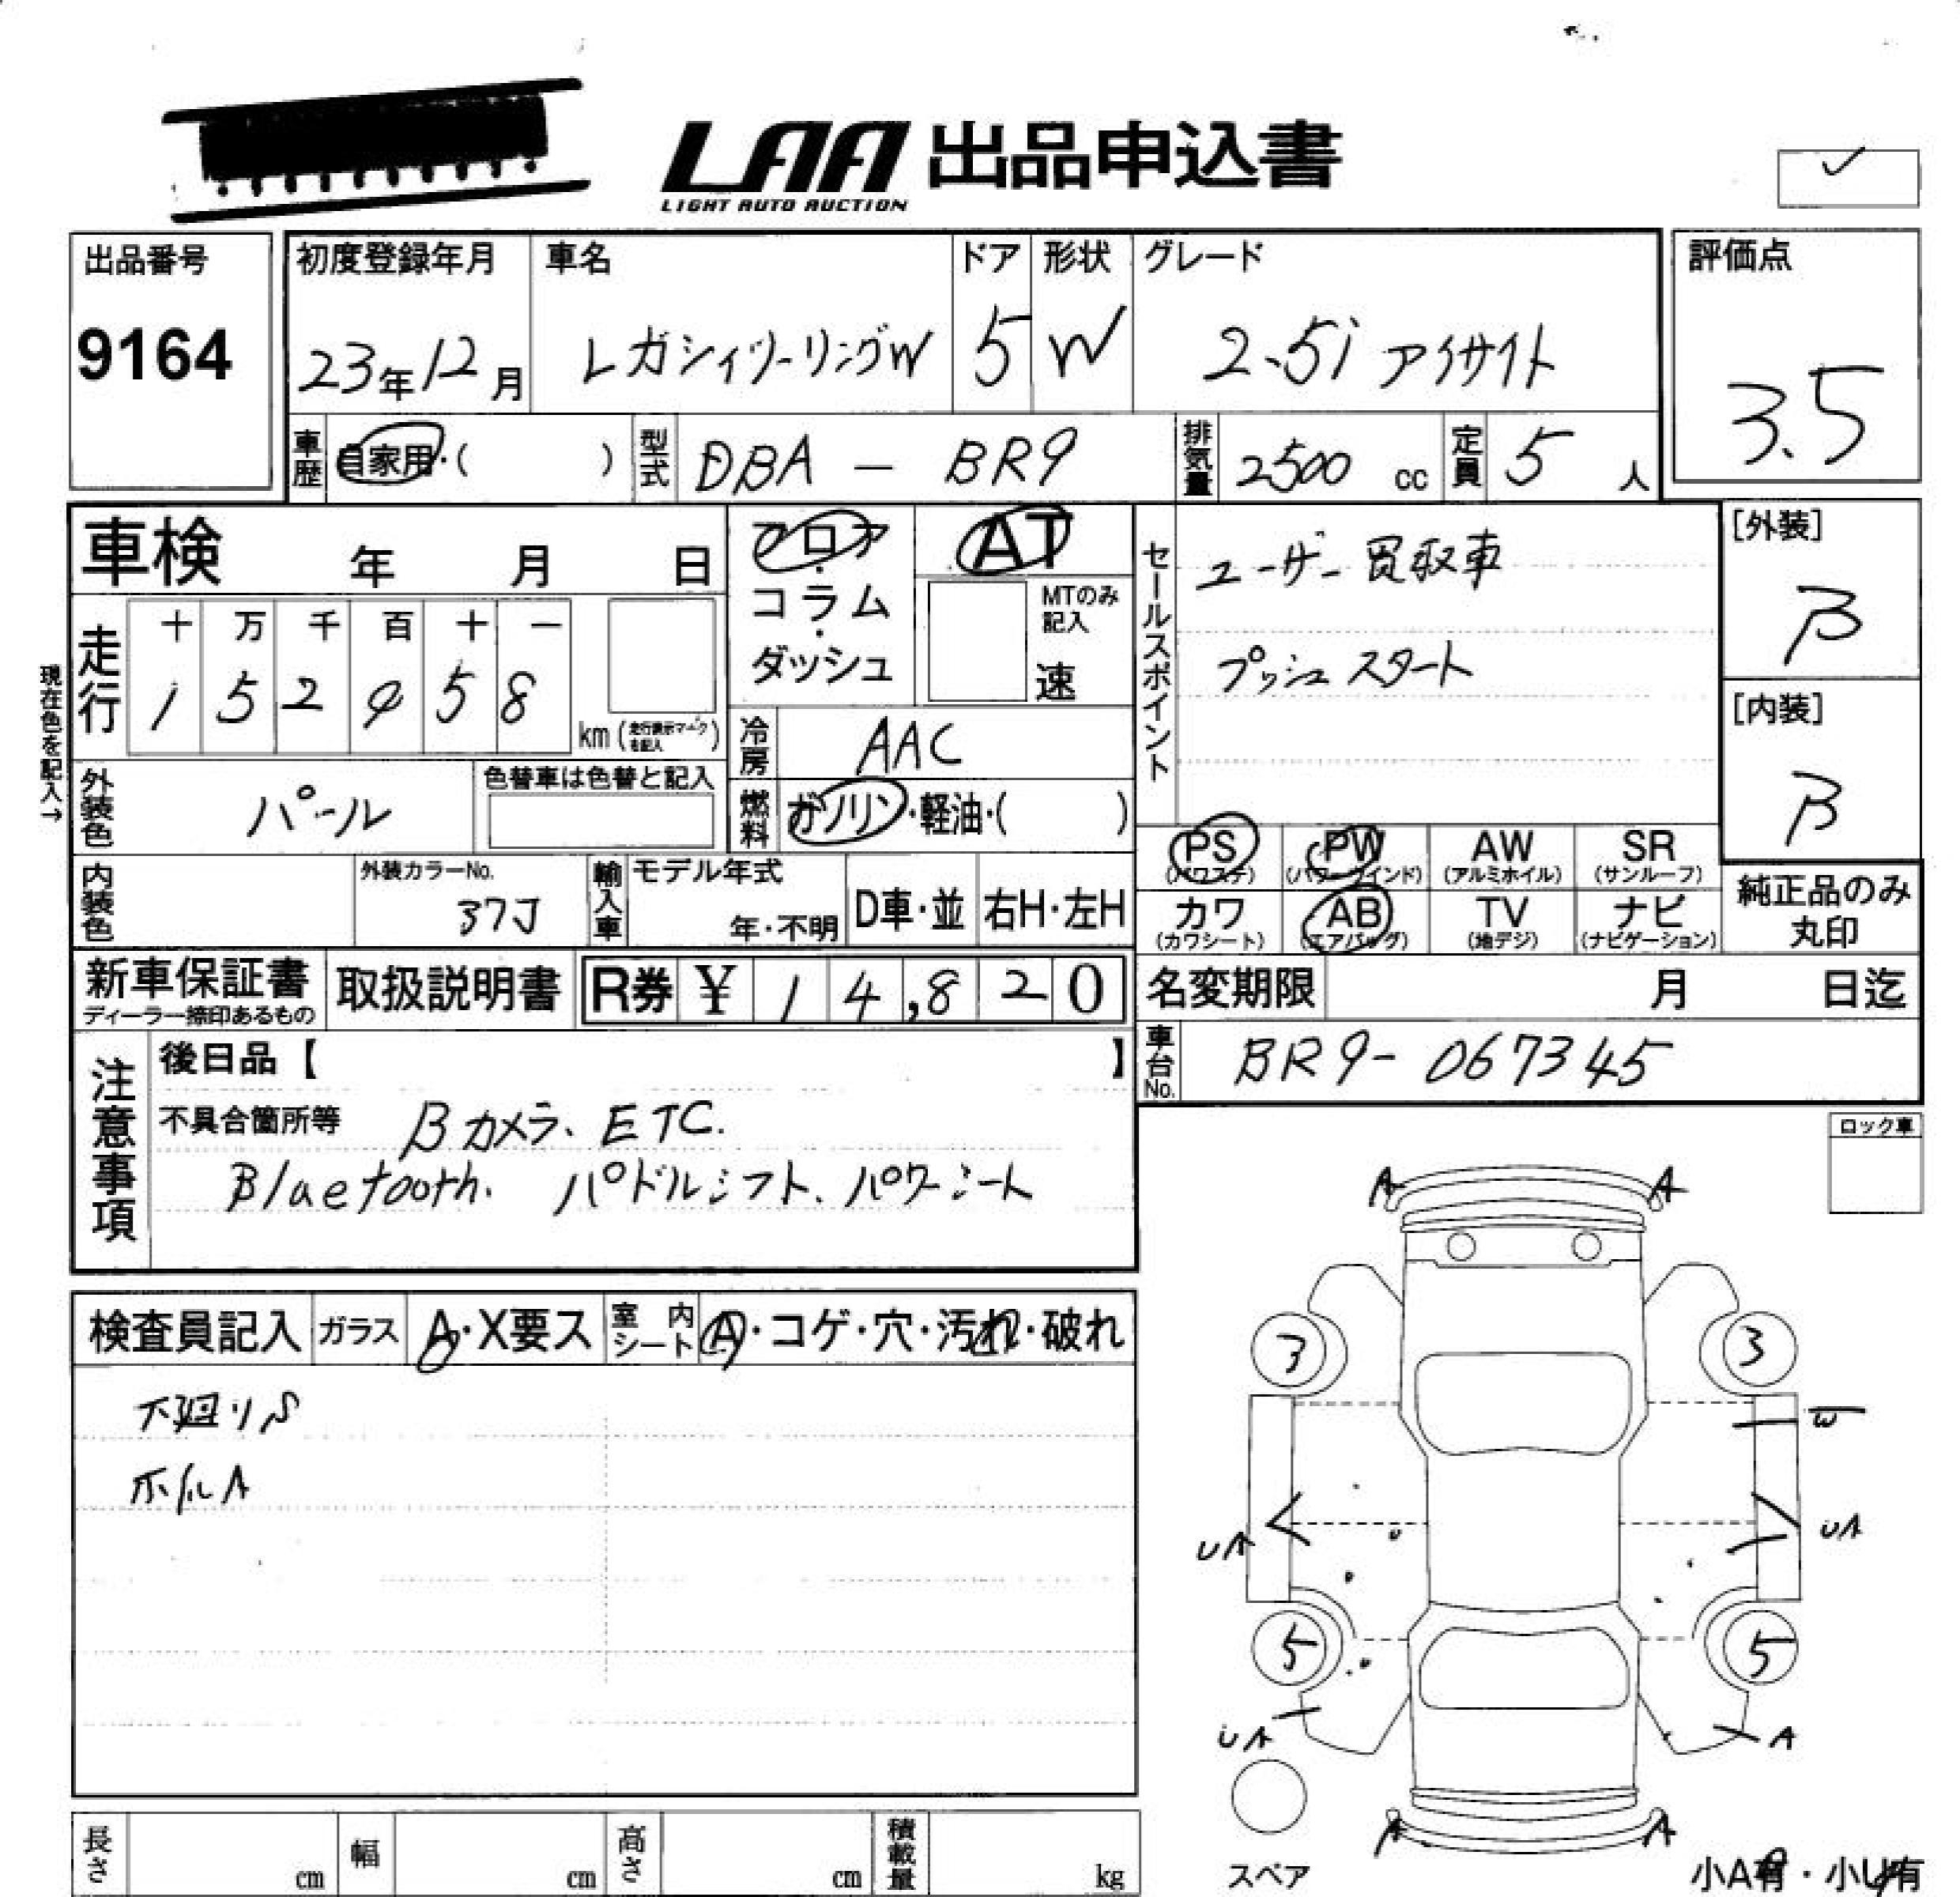 LAA 出品申込書
LIGHT AUTO AUCTION
出品番号
9164
初度登録年月 車名 ドア 形状 グレード
23年12月 レガシィツーリングW 5 W 2.5i アイサイト
評価点
3.5
車歴 自家用・( ) 型式 DBA - BR9 排気量 2500 cc 定員 5 人
車検 年 月 日
フロア・コラム・ダッシュ
AT
MTのみ記入
速
走行
十 万 千 百 十 一
1 5 2 9 5 8
km(走行表示マークを記入)
現在色を記入→
冷房 AAC
燃料 ガソリン・軽油・( )
外装色 パール
色替車は色替と記入
内装色
外装カラーNo.
37J
輸入車 モデル年式
年・不明 D車・並 右H・左H
セールスポイント
ユーザー買取車
プッシュスタート
[外装]
B
[内装]
B
PS PW AW SR
(パワステ) (パワーウインド) (アルミホイル) (サンルーフ)
カワ AB TV ナビ
(カワシート) (エアバッグ) (地デジ) (ナビゲーション)
純正品のみ
丸印
新車保証書
ディーラー捺印あるもの
取扱説明書
R券 ¥ 14,820
名変期限 月 日迄
車台No. BR9-067345
注意事項
後日品【 】
不具合箇所等 Bカメラ、ETC.
Bluetooth. パドルシフト、パワーシート
ロック車
検査員記入 ガラス A・X要ス 室内シート A・コゲ・穴・汚れ・破れ
下廻りS
ホイルA
A A
3 3
W
UA UA
5 5
UA A
A A
スペア
小A有・小U有
長さ cm 幅 cm 高さ cm 積載量 kg